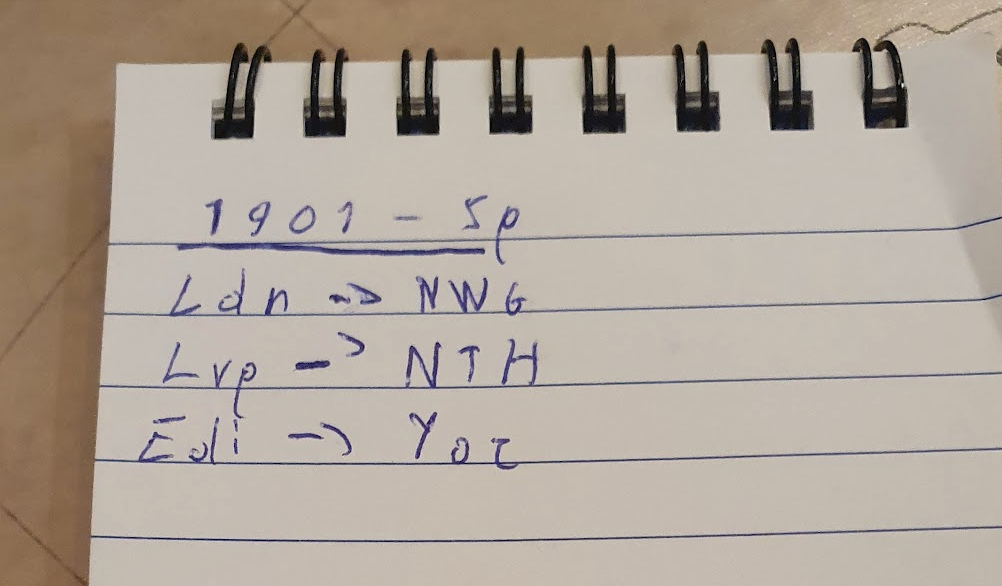 1901 - Sp
Ldn -> NWG
Lvp -> NTH
Edi -> Yor